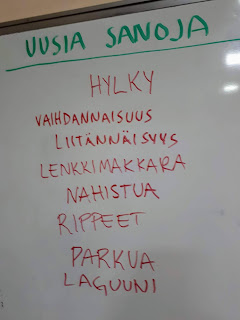 UUSIA SANOJA
HYLKY
VAIHDANNAISUUS
LIITÄNNÄISYYS
LENKKIMAKKARA
NAHISTUA
RIPPEET
PARKUA
LAGUUNI